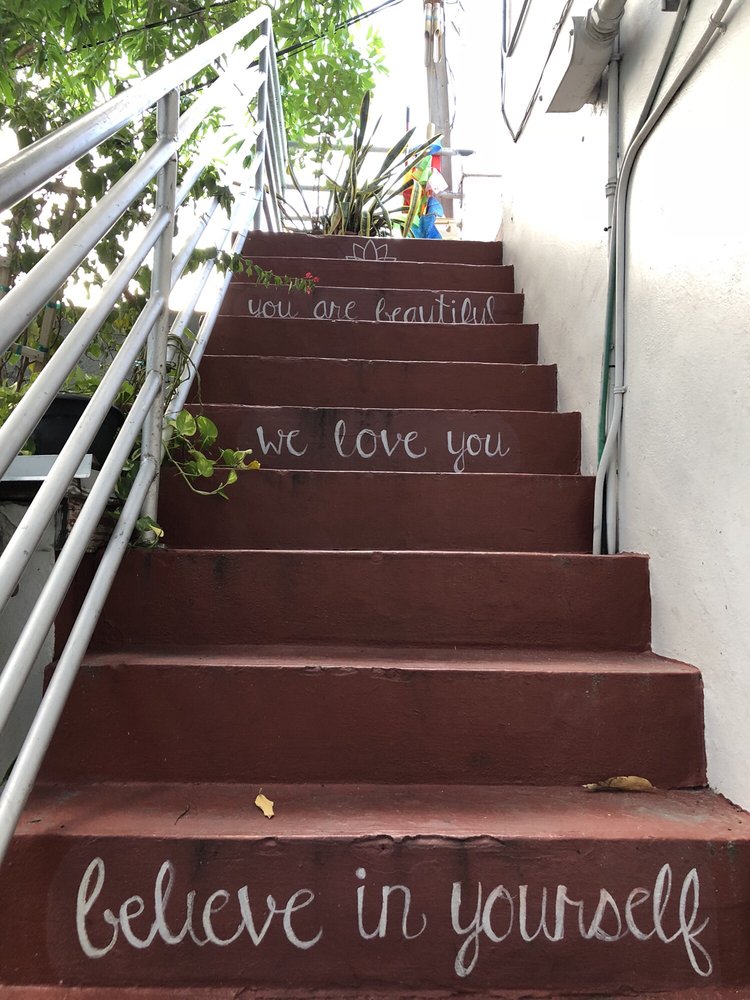 you are beautiful
we love you
believe in yourself